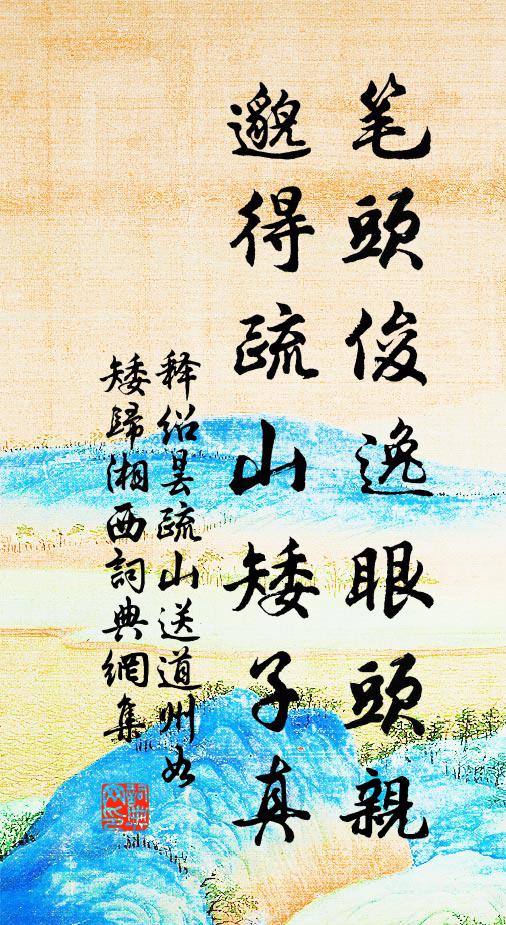 笔頭俊逸眼頭親
邈得疏山矮子真
释绍昙疏山送道州如
矮歸湘西詞典網集